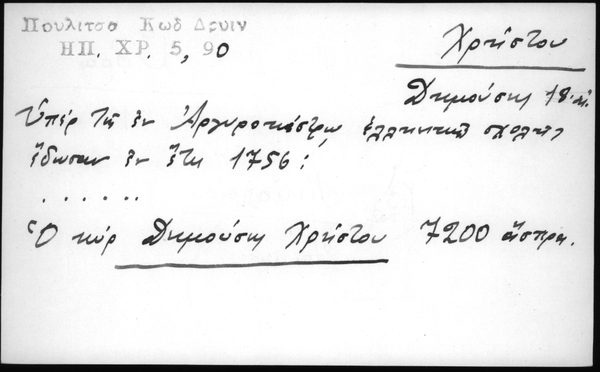 Πουλιτσα Κωδ Δρυιν
ΗΠ. ΧΡ. 5, 90
Χρήστου
Δημούσης 18 αἰ.
Ὑπέρ τῆς ἐν Ἀργυροκάστρῳ ἑλληνικῆς σχολῆς
ἔδωσαν ἐν ἔτει 1756:
. . . . . .
Ὁ κύρ Δημούσης Χρήστου 7200 ἄσπρα.